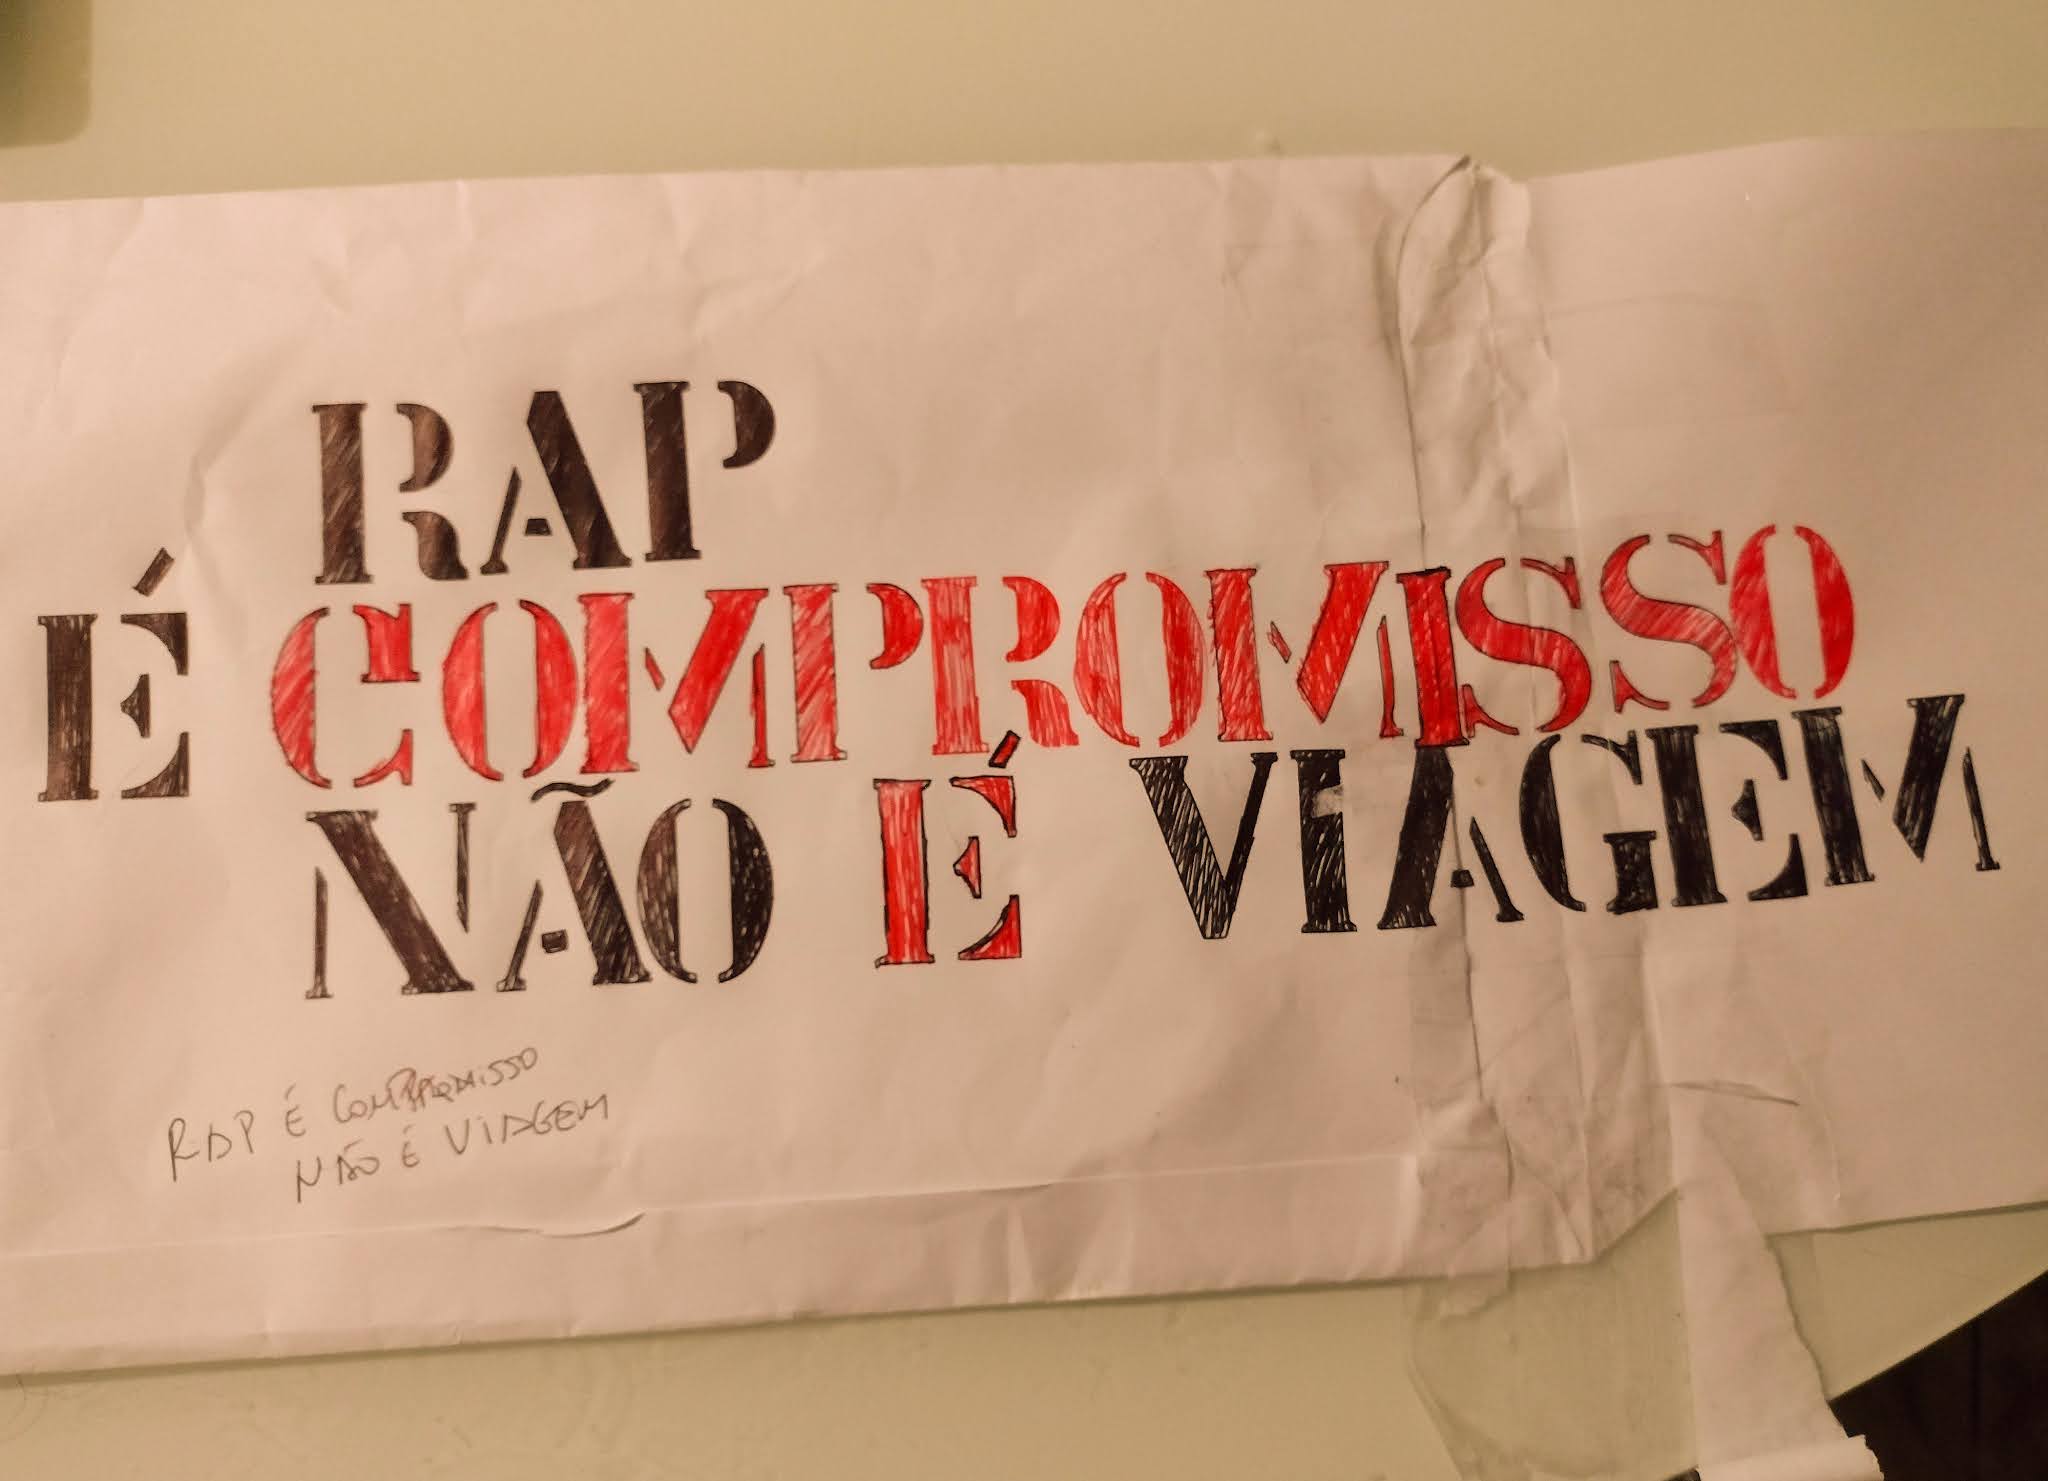 RAP
É COMPROMISSO
NÃO É VIAGEM
RAP É COMPROMISSO
NÃO É VIAGEM